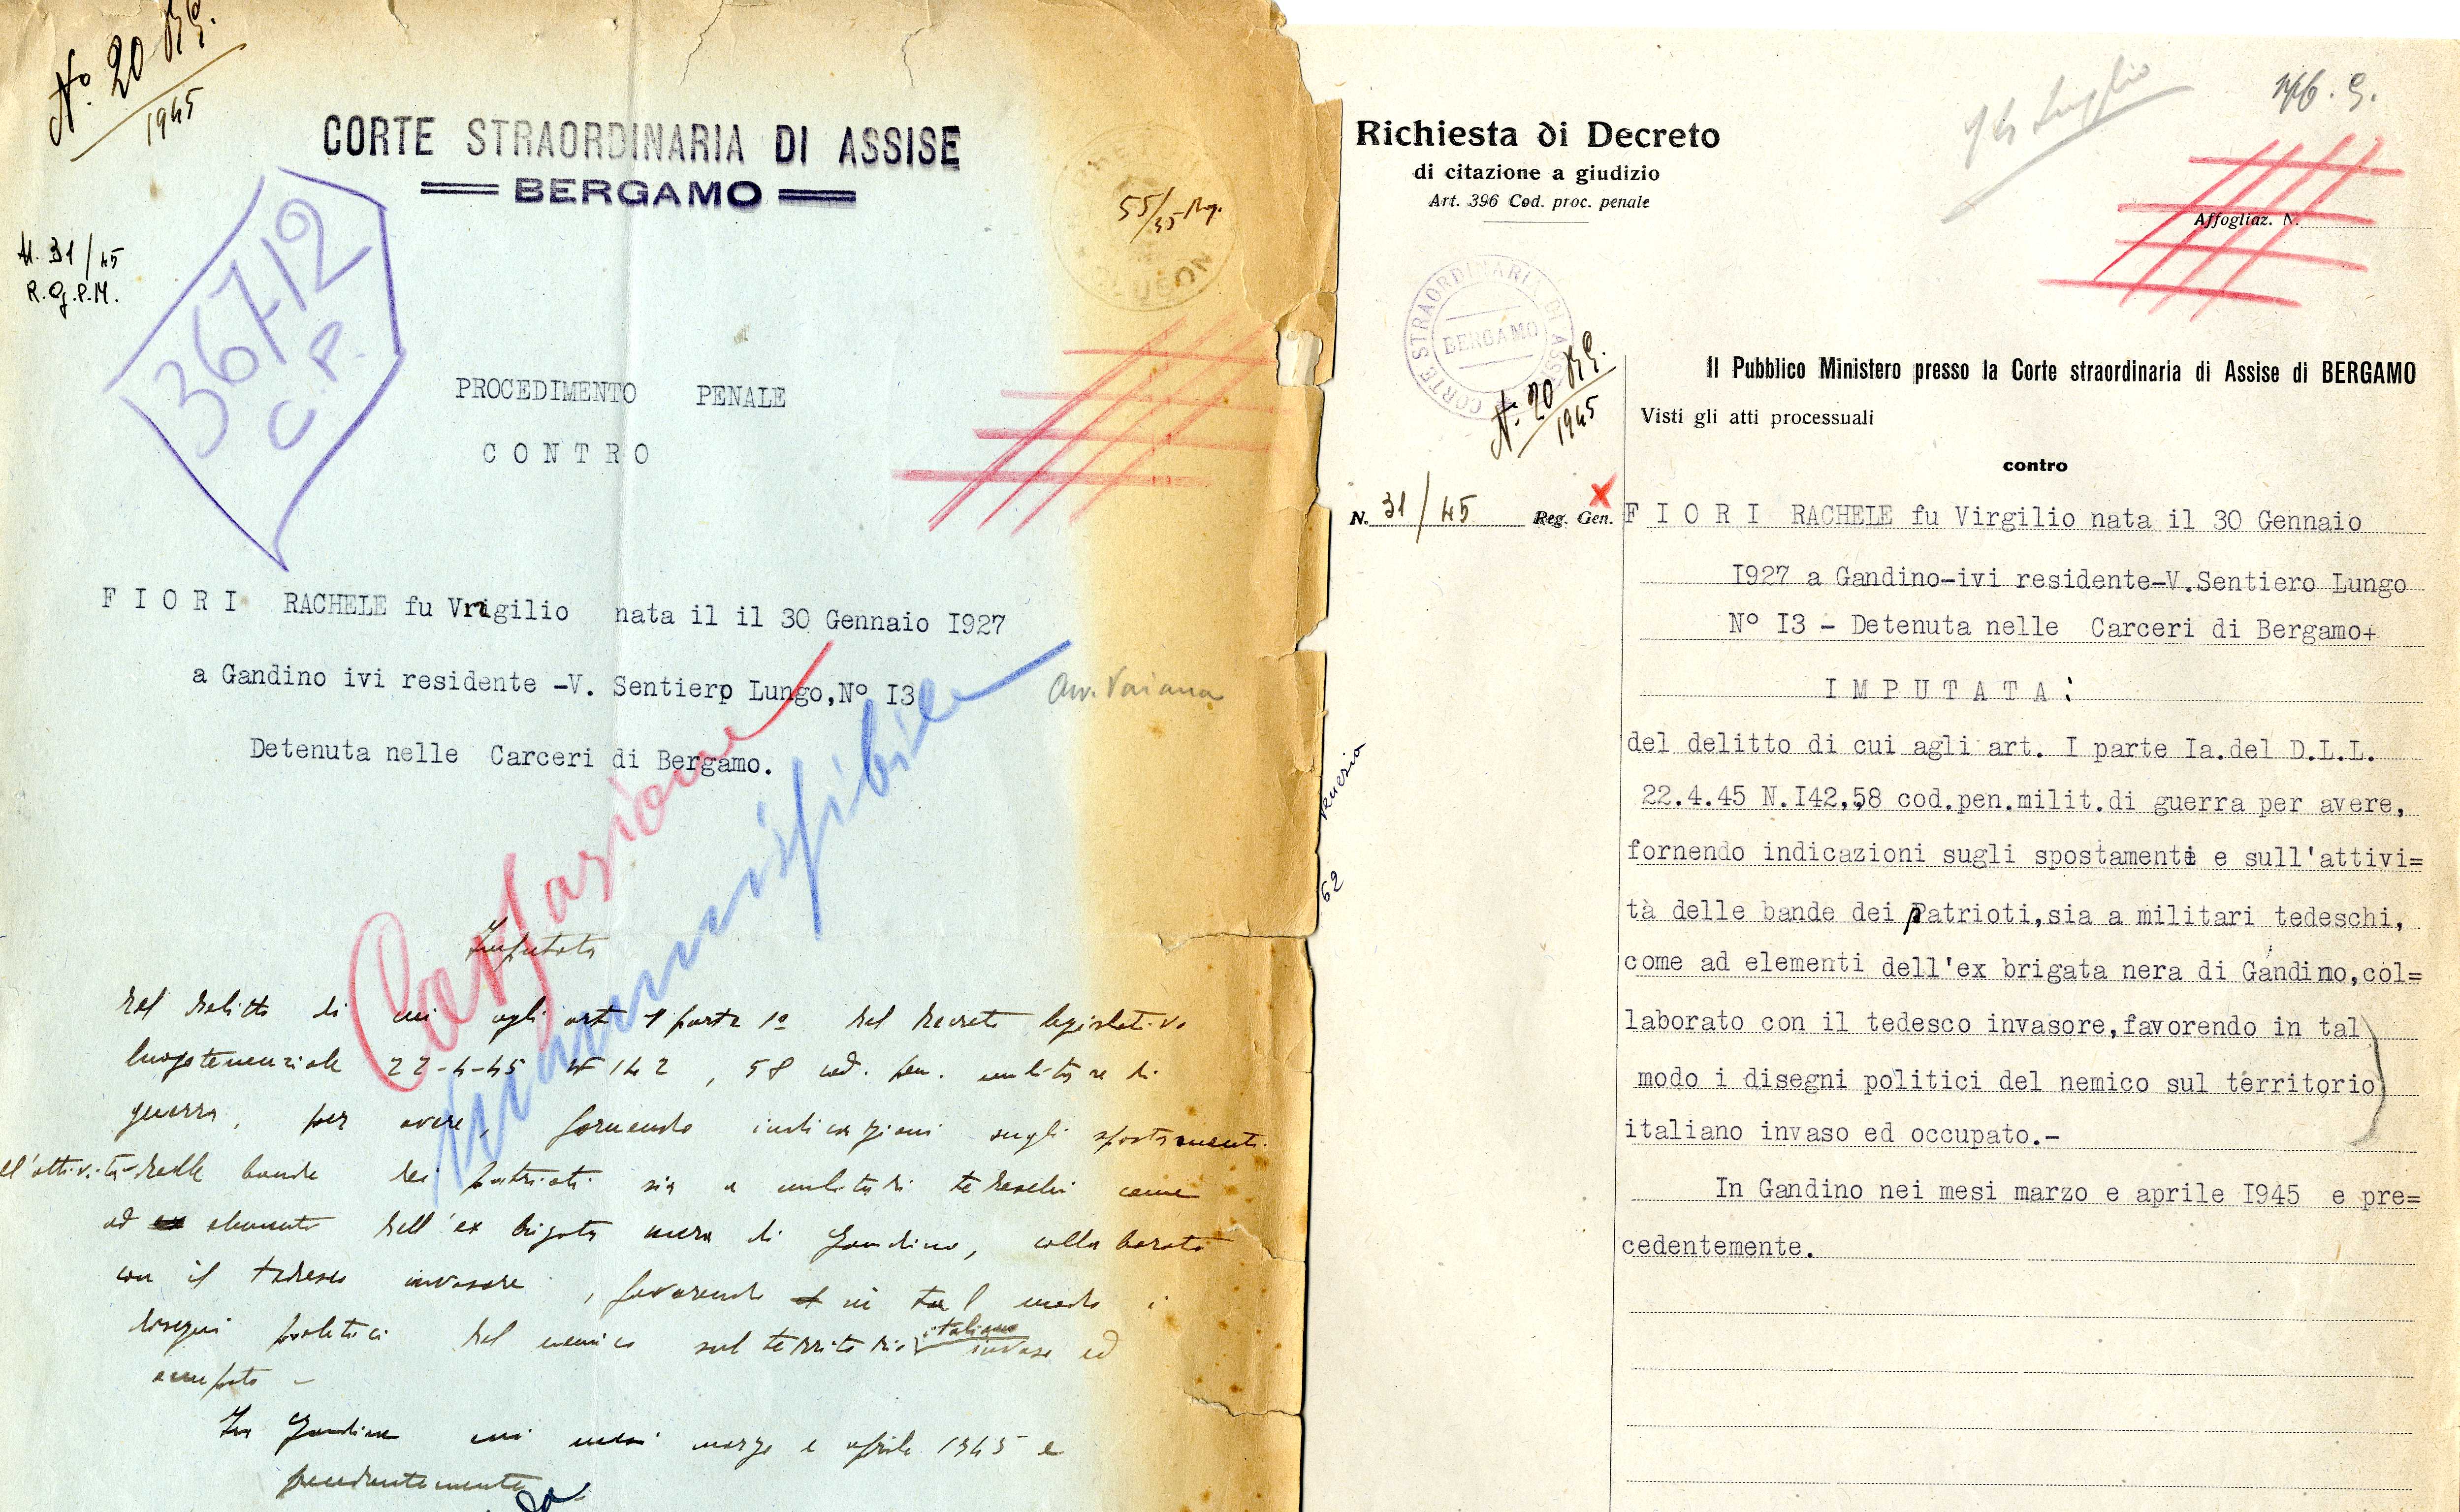 N.° 20 RG.
1945
CORTE STRAORDINARIA DI ASSISE
BERGAMO
55/45 Reg.
N. 31/45
R.G.P.M.
36712
C.P.
PROCEDIMENTO PENALE
CONTRO
FIORI RACHELE fu Vrigilio nata il il 30 Gennaio I927
a Gandino ivi residente -V. Sentiero Lungo,N° I3
Avv. Vaiana
Detenuta nelle Carceri di Bergamo.
Cassazione
Inammissibile
Imputata
del delitto di cui agli art 1 parte 1a del decreto legislativo
luogotenenziale 22-4-45 N 142, 58 cod. pen. militare di
guerra, per avere, fornendo indicazioni sugli spostamenti
ell'attività delle bande dei patrioti sia a militari tedeschi come
ad elementi dell'ex brigata nera di Gandino, collaborato
con il tedesco invasore, favorendo in tal modo i
disegni politici del nemico sul territorio italiano invaso ed
occupato -
In Gandino nei mesi marzo e aprile 1945 e
precedentemente
Richiesta di Decreto
di citazione a giudizio
Art. 396 Cod. proc. penale
Luglio
Affogliaz. N.
CORTE STRAORDINARIA DI ASSISE
BERGAMO
N.° 20 RG.
1945
Il Pubblico Ministero presso la Corte straordinaria di Assise di BERGAMO
Visti gli atti processuali
contro
N. 31/45 Reg. Gen.
FIORI RACHELE fu Virgilio nata il 30 Gennaio
I927 a Gandino-ivi residente-V.Sentiero Lungo
N° I3 - Detenuta nelle Carceri di Bergamo+
IMPUTATA:
del delitto di cui agli art. I parte Ia.del D.L.L.
22.4.45 N.I42,58 cod.pen.milit.di guerra per avere,
fornendo indicazioni sugli spostamenti e sull'attivi=
tà delle bande dei Patrioti,sia a militari tedeschi,
come ad elementi dell'ex brigata nera di Gandino,col=
laborato con il tedesco invasore,favorendo in tal
modo i disegni politici del nemico sul territorio
italiano invaso ed occupato.-
In Gandino nei mesi marzo e aprile I945 e pre=
cedentemente.